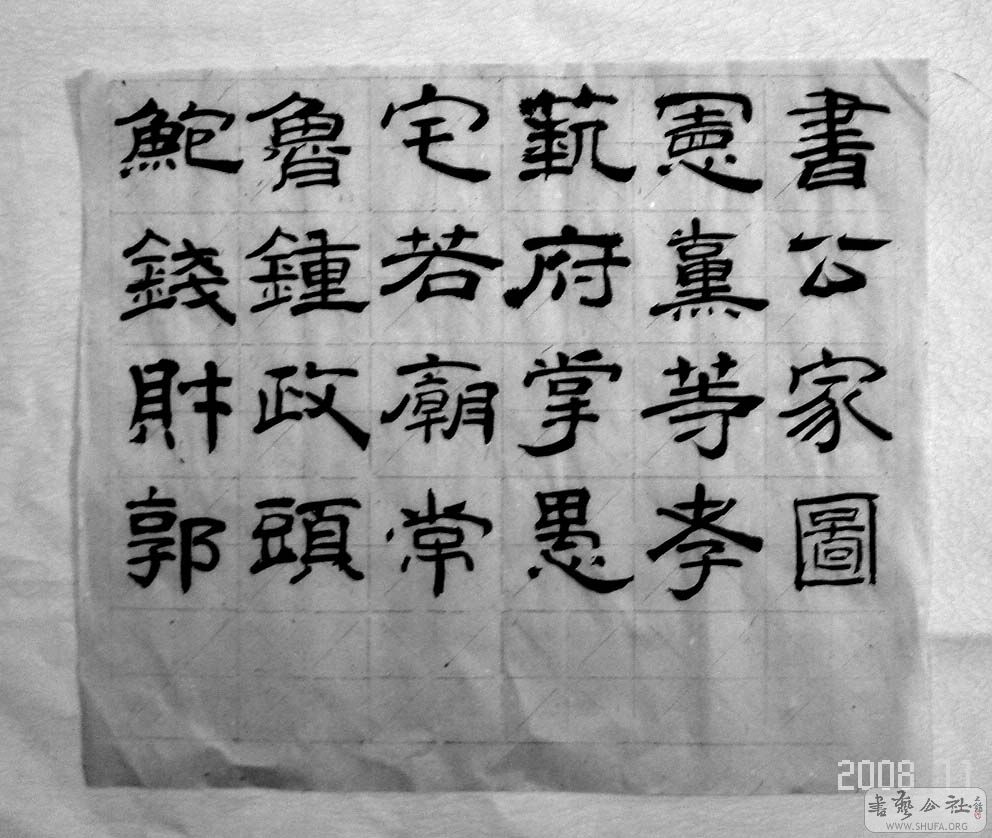 書公家圖
憲黨等孝
藝府掌愚
宅若廟常
魯鍾政頭
鮑錢財郭
2008
書藝公社
WWW.SHUFA.ORG